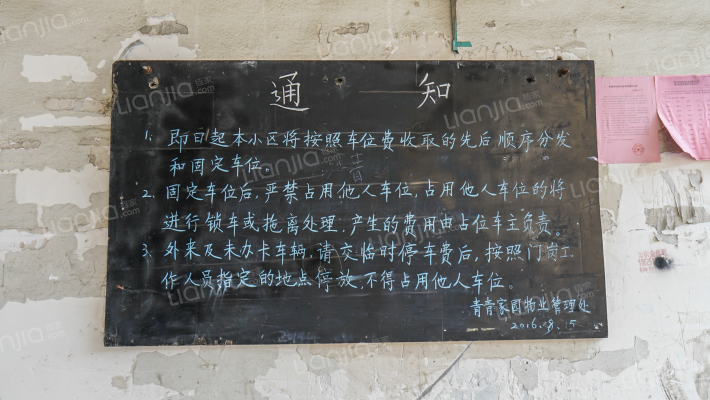 通 知
1. 即日起本小区将按照车位费收取的先后顺序分发
和固定车位。
2. 固定车位后,严禁占用他人车位,占用他人车位的将
进行锁车或拖离处理,产生的费用由占位车主负责。
3. 外来及未办卡车辆,请交临时停车费后,按照门岗工
作人员指定的地点停放,不得占用他人车位。
青青家园物业管理处
2016.8.5